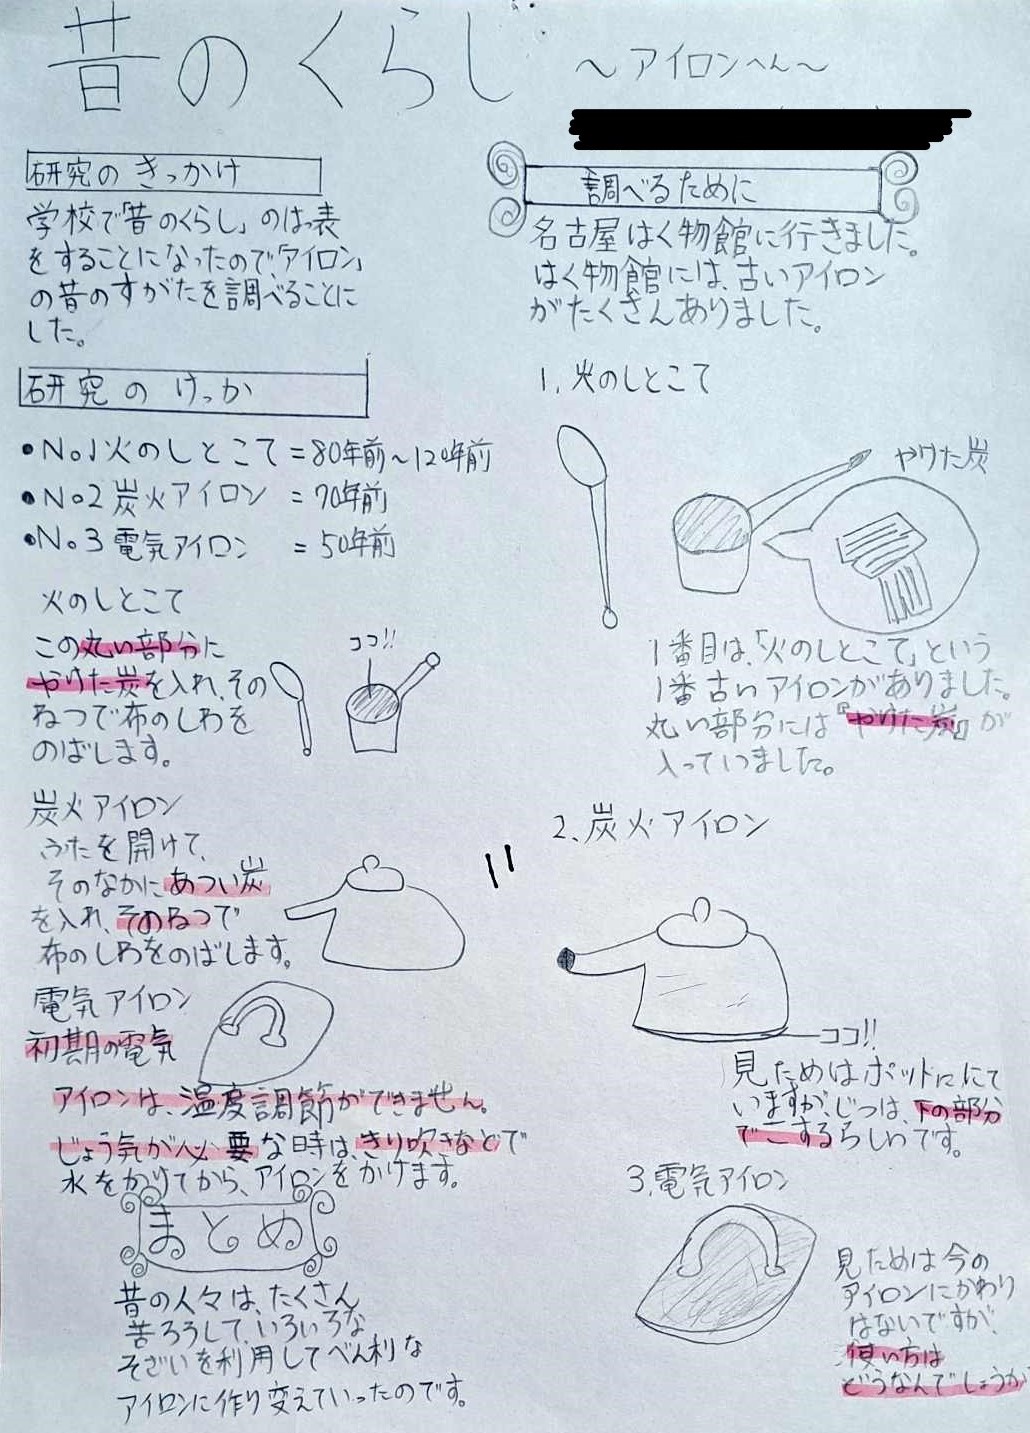 昔のくらし
～アイロンへん～
研究のきっかけ
学校で「昔のくらし」のはっ表
をすることになったので、「アイロン」
の昔のすがたを調べることに
した。
研究のけっか
•No.1火のしとこて=80年前～120年前
•No.2炭火アイロン=70年前
•No.3電気アイロン=50年前
火のしとこて
この丸い部分に
やけた炭を入れ、その
ねつで布のしわを
のばします。
ココ!!
炭火アイロン
ふたを開けて、
そのなかにあつい炭
を入れ、そのねつで
布のしわをのばします。
電気アイロン
初期の電気
アイロンは、温度調節ができません。
じょう気が必要な時は、きり吹きなどで
水をかけてから、アイロンをかけます。
まとめ
昔の人々は、たくさん
苦ろうして、いろいろな
そざいを利用してべん利な
アイロンに作り変えていったのです。
調べるために
名古屋はく物館に行きました。
はく物館には、古いアイロン
がたくさんありました。
1.火のしとこて
やけた炭
1番目は、「火のしとこて」という
1番古いアイロンがありました。
丸い部分には『やけた炭』が
入っていました。
2.炭火アイロン
ココ!!
見ためはポットににて
いますが、じつは、下の部分
でこするらしいです。
3.電気アイロン
見ためは今の
アイロンにかわり
はないですが、
使い方は
どうなんでしょうか